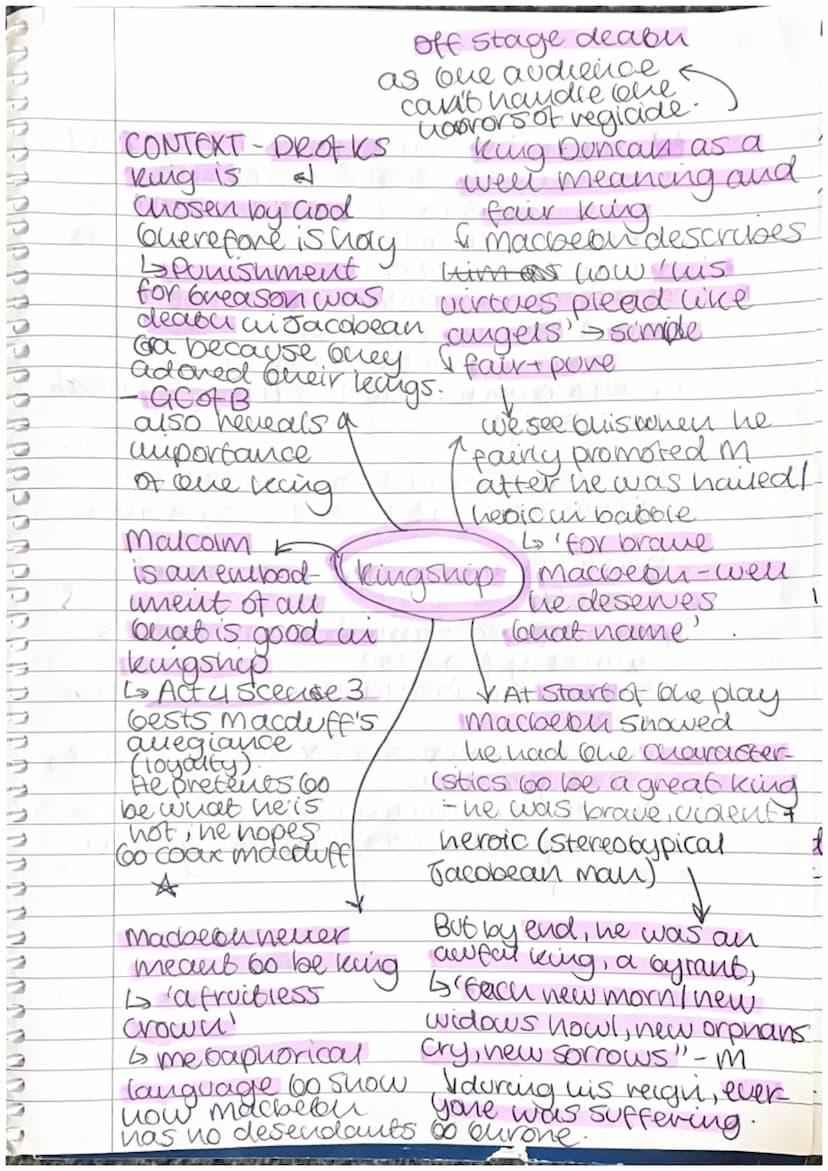 off stage death
as the audience
can't handle the
horrors of regicide.
CONTEXT - DROfKS
king is
chosen by God
therefore is holy
↳ Punishment
for treason was
death in Jacobean
era because they
adored their kings.
- GCofB
also reveals
importance
of the king
King Duncan as a
well meaning and
fair king
↓ Macbeth describes
him as how 'his
virtues plead like
angels' → simile
↓ fair + pure
we see this when he
fairly promoted M
after he was hailed/
heroic in battle
↳ 'for brave
Macbeth - well
he deserves
that name'.
kingship
Malcolm
is an embod-
iment of all
that is good in
kingship
↳ Act 4 scene 3
tests Macduff's
allegiance
(loyalty).
He pretends to
be what he is
not; he hopes
to coax macduff
☆
At start of the play
Macbeth showed
he had the character-
istics to be a great king
- he was brave, violent +
heroic (stereotypical
Jacobean man)
Macbeth never
meant to be king
↳ 'a fruitless
crown'
↳ metaphorical
language to show
how macbeth
has no desendants to throne.
But by end, he was an
awful king, a tyrant,
↳ "Each new morn/new
widows howl, new orphans
cry, new sorrows" - M
↓ during his reign, ever
yone was suffering.